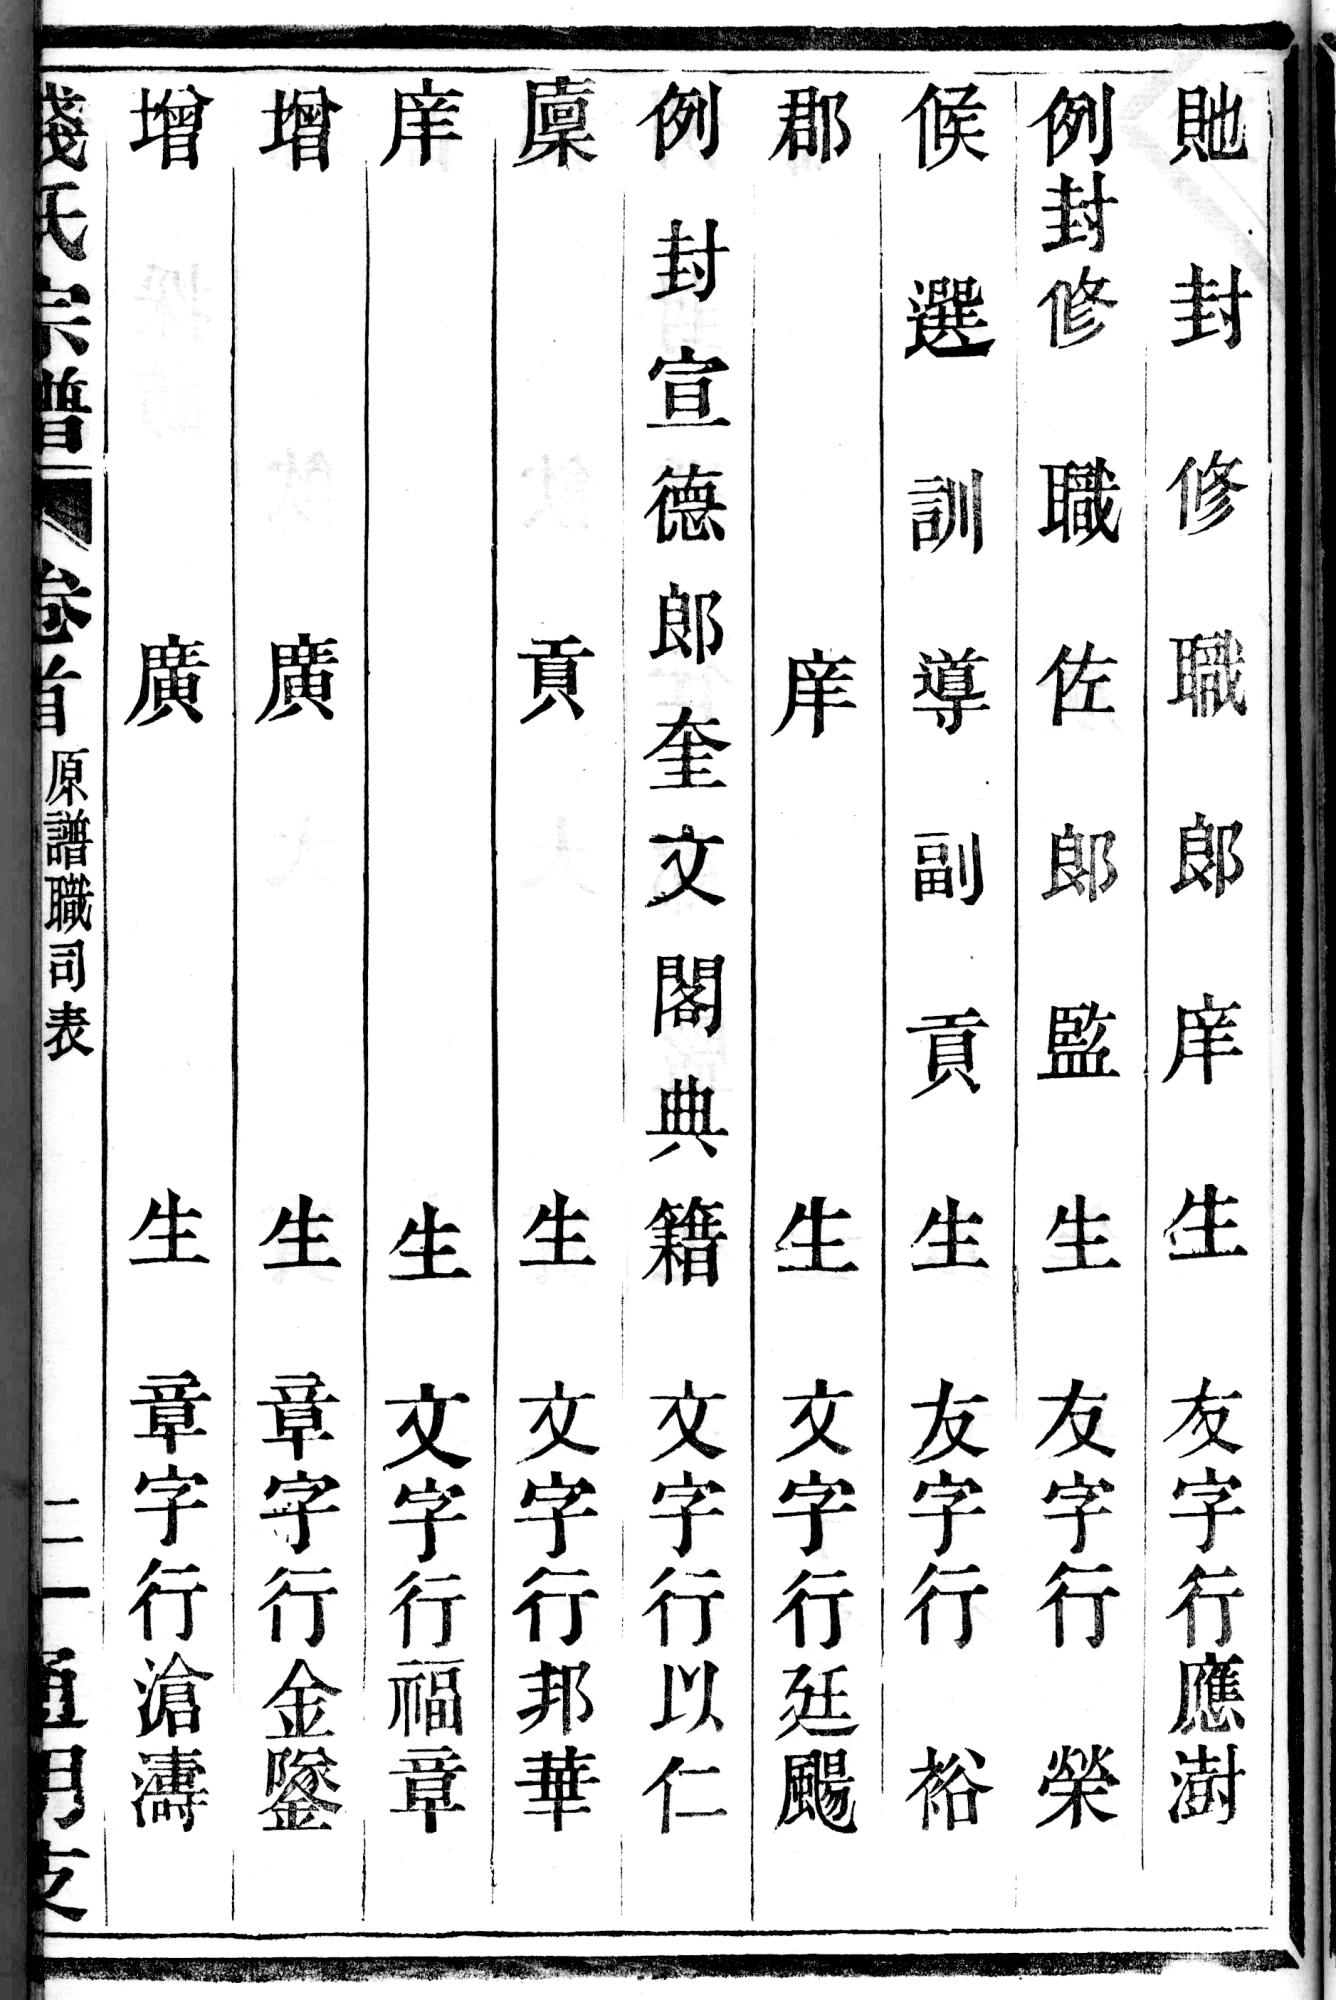 貤封修職郎庠生友字行應澍
例封修職佐郎監生友字行榮
候選訓導副貢生友字行裕
郡庠生文字行廷颺
例封宣德郎奎文閣典籍文字行以仁
廩貢生文字行邦華
庠生文字行福章
增廣生章字行金鑿
增廣生章字行滄濤
錢氏宗譜 卷首 原譜職司表 二 一通明支